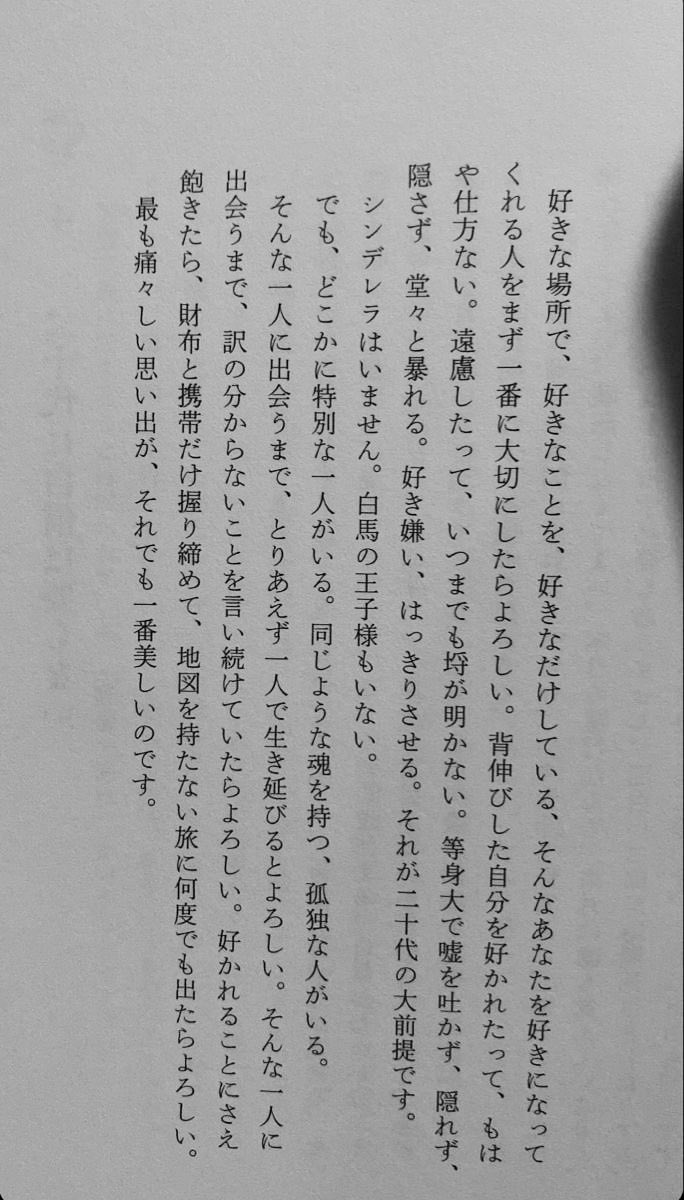 好きな場所で、好きなことを、好きなだけしている、そんなあなたを好きになって
くれる人をまず一番に大切にしたらよろしい。背伸びした自分を好かれたって、もは
や仕方ない。遠慮したって、いつまでも埒が明かない。等身大で嘘を吐かず、隠れず、
隠さず、堂々と暴れる。好き嫌い、はっきりさせる。それが二十代の大前提です。
シンデレラはいません。白馬の王子様もいない。
でも、どこかに特別な一人がいる。同じような魂を持つ、孤独な人がいる。
そんな一人に出会うまで、とりあえず一人で生き延びるとよろしい。そんな一人に
出会うまで、訳の分からないことを言い続けていたらよろしい。好かれることにさえ
飽きたら、財布と携帯だけ握り締めて、地図を持たない旅に何度でも出たらよろしい。
最も痛々しい思い出が、それでも一番美しいのです。